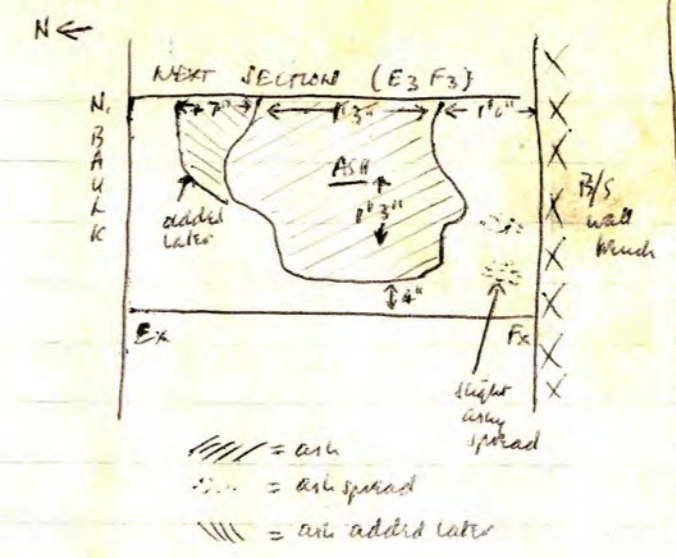 N ←
NEXT SECTION (E3 F3)
N. BAULK
7"
1' 3"
1' 6"
ASH
1' 3"
added later
B/S wall trench
4"
Ex
Fx
slight ashy spread
= ash
= ash spread
= ash added later